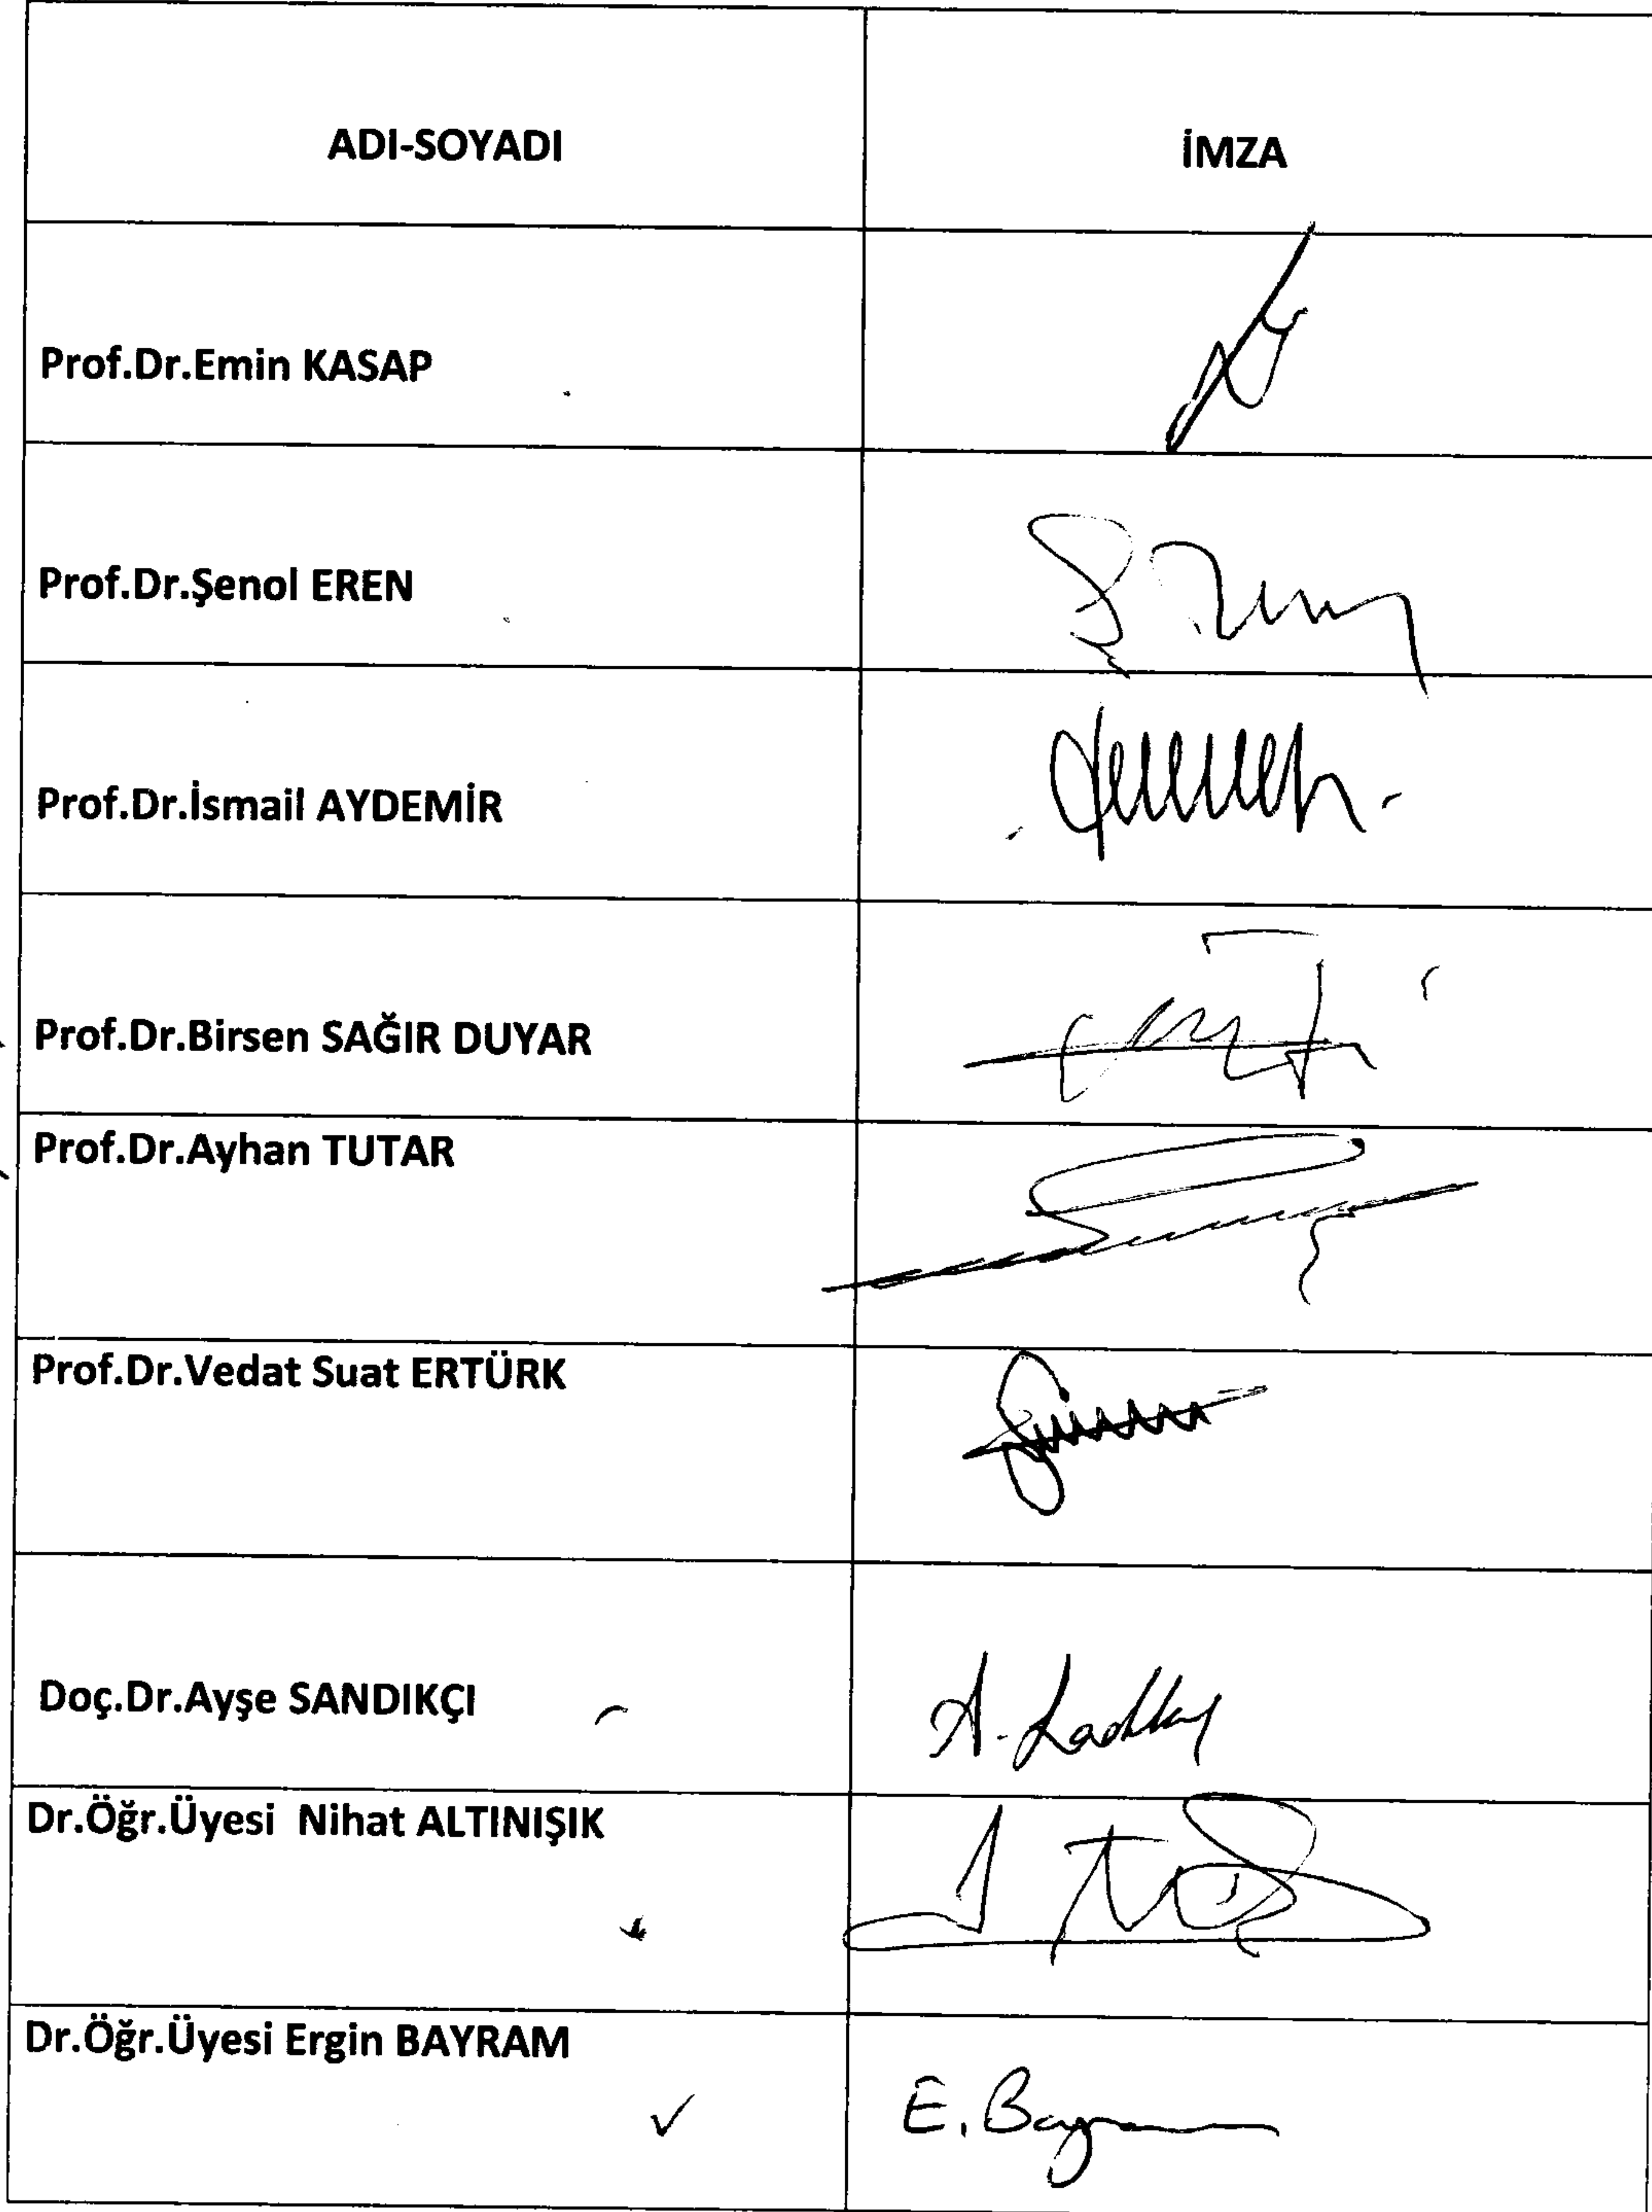 ADI-SOYADI İMZA
Prof.Dr.Emin KASAP
Prof.Dr.Şenol EREN
Prof.Dr.İsmail AYDEMİR
Prof.Dr.Birsen SAĞIR DUYAR
Prof.Dr.Ayhan TUTAR
Prof.Dr.Vedat Suat ERTÜRK
Doç.Dr.Ayşe SANDIKÇI
Dr.Öğr.Üyesi Nihat ALTINIŞIK
Dr.Öğr.Üyesi Ergin BAYRAM
E. Bayram